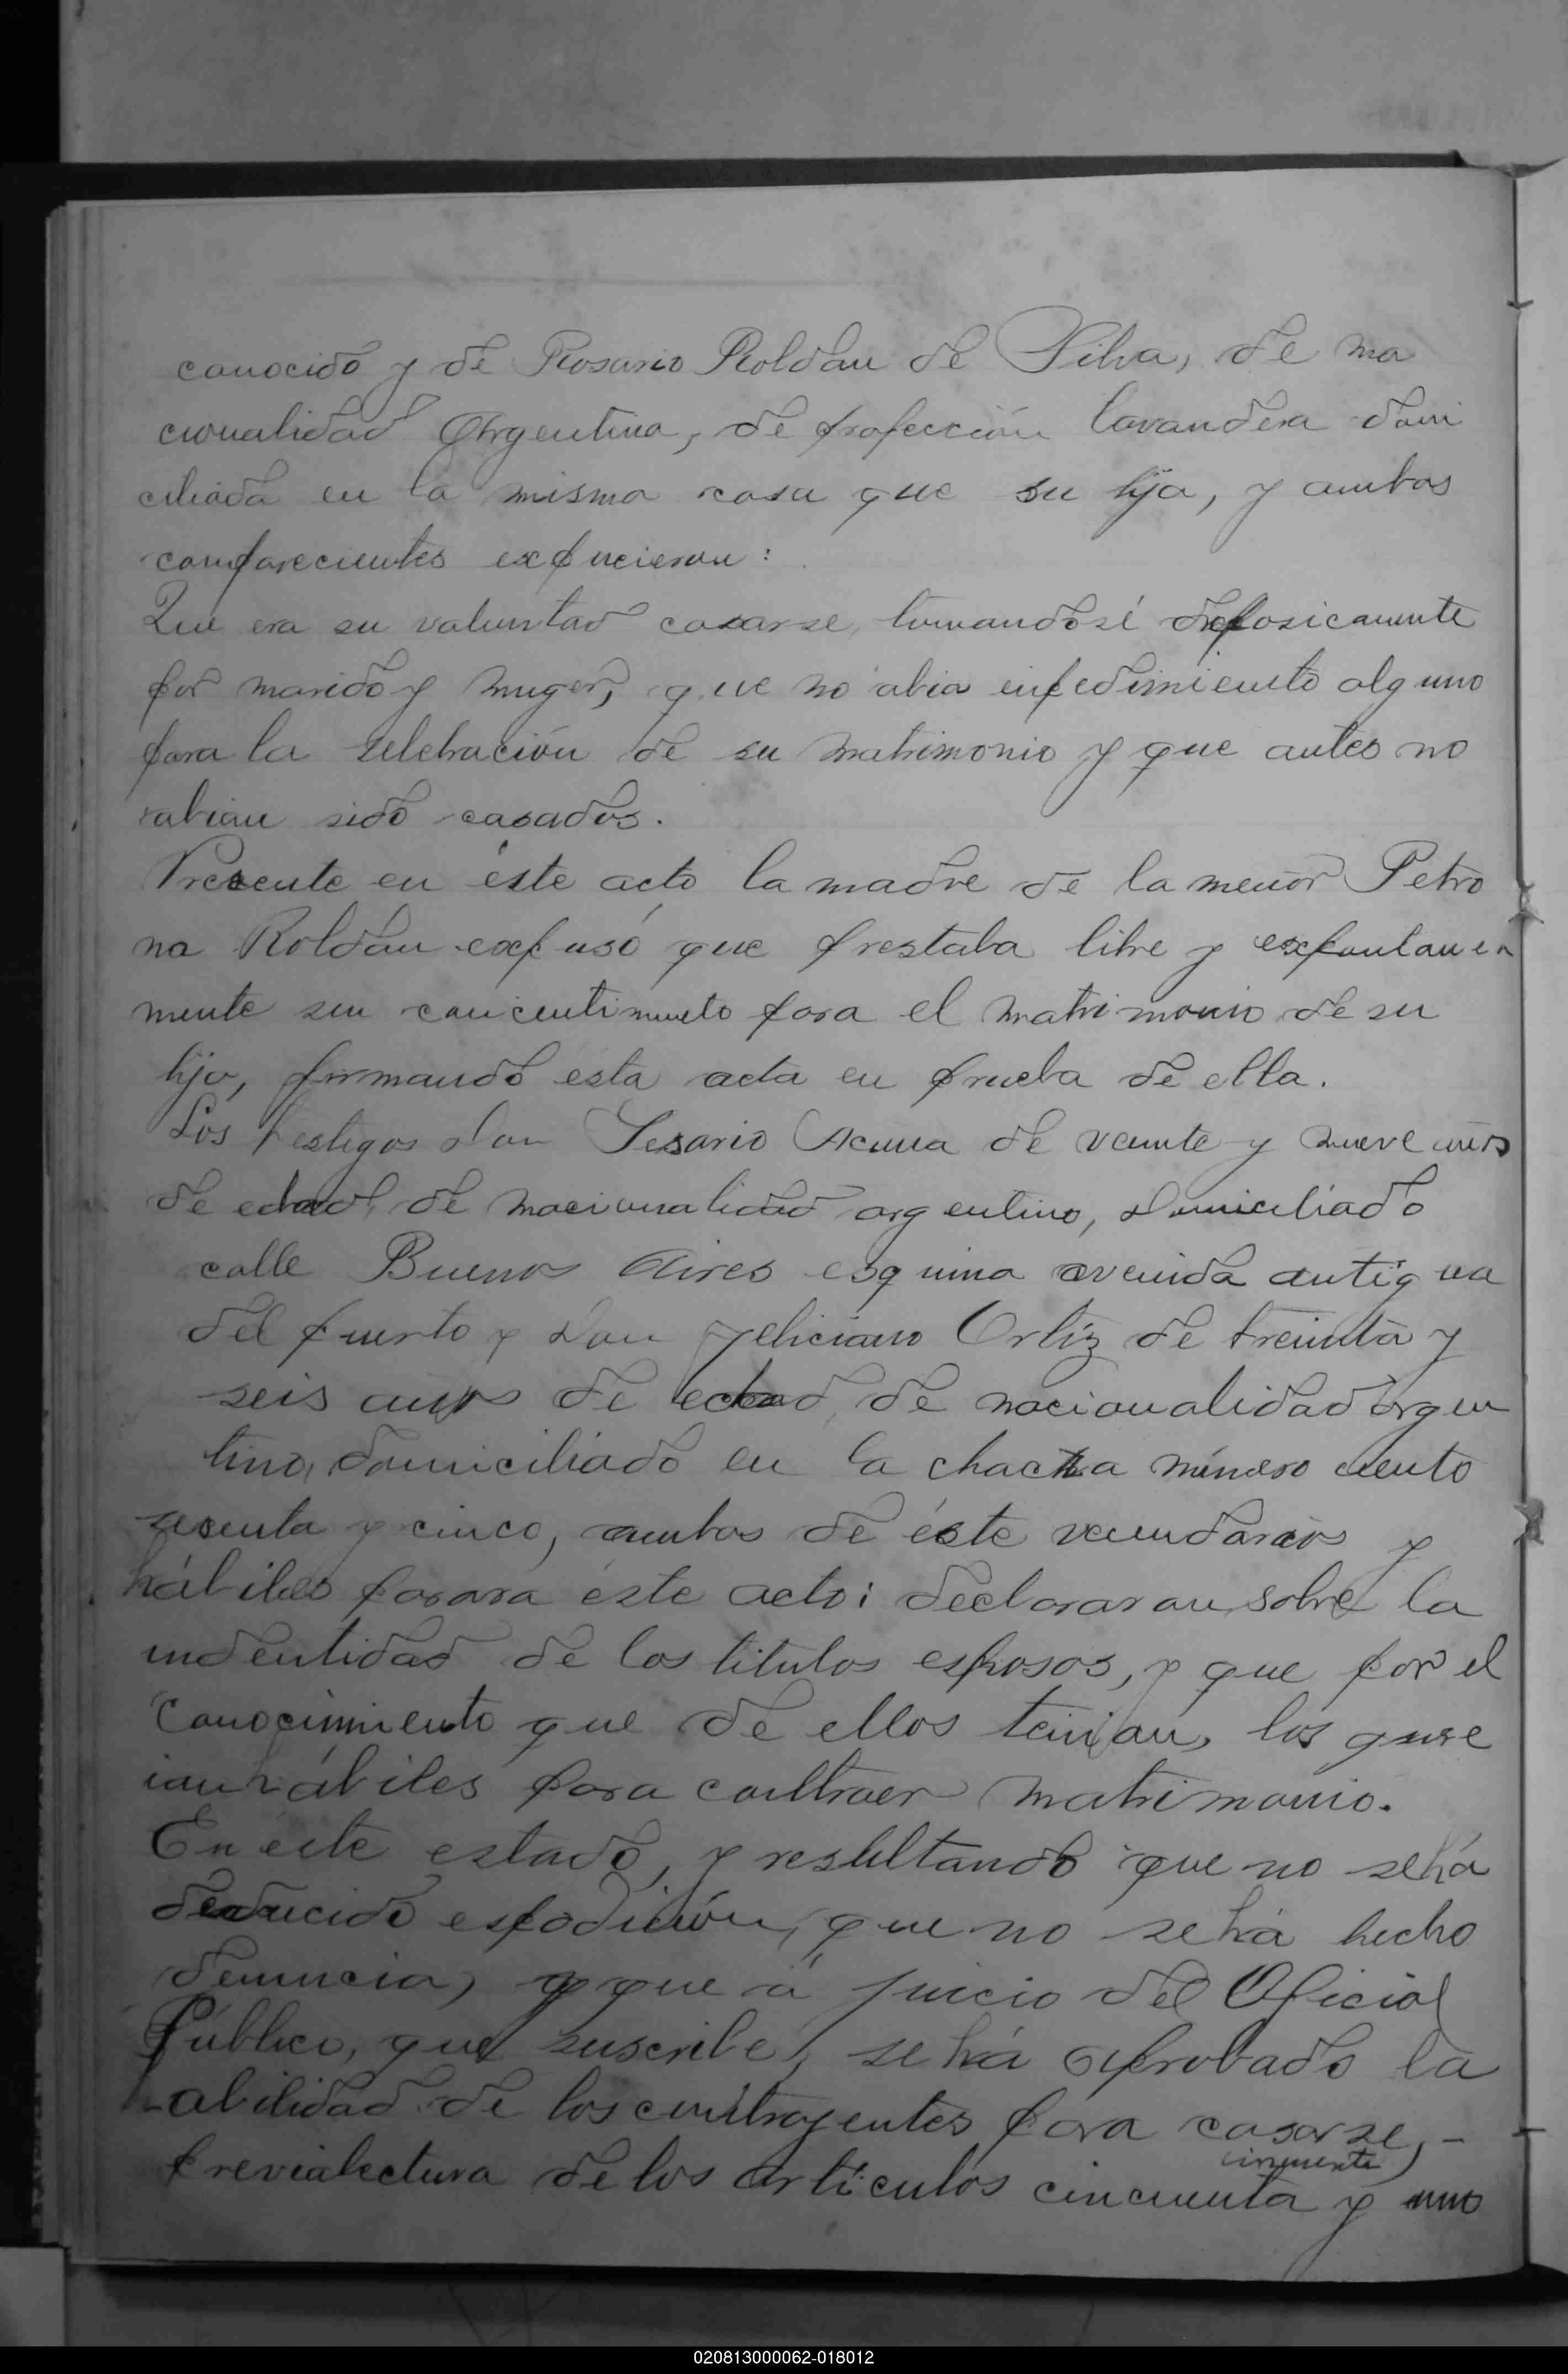 conocido y de Rosario Roldan de Silva, de na
cionalidad Argentina, de profección lavandera domi
ciliada en la misma casa que su hija, y ambos
comparecientes expucieron:
Que era su voluntad casarse, tomandosé
por marido y muger, que no abia enpedimiento alguno
para la selebración de su matrimonio y que antes no
abian sido casados.
Presente en éste acto la madre de la menor Petro
na Roldán expusó que prestaba libre y expontanea
mente su concentimiento para el matrimonio de su
hija, firmando esta acta en prueba de ella.
Los testigos Don Sesario Acuna de veinte y nueve años
de edad, de nacionalidad argentino, Domiciliado
calle Buenos Aires esquina avenida antigua
del puerto y Don Feliciano Ortíz de treinta y
seis años de edad, de nacionalidad argen
tino, domiciliado en la chacra número ciento
sesenta y cinco, ambos de éste vecindario y
hábiles parara éste acto: declararan sobre la
indentidad de los titulos esposos, y que por el
conocimiento que de ellos tenian, los que
ian hábiles para contraer matrimonio.
En este estado, y resultando que no se há
deducido que no se há hecho
denuncia, y que á juicio del Oficial
Público, que suscribe, se há aprobado la
abilidad de los contrayentes para casarse, -
previa lectura de los artículos cincuenta y uno
020813000062-018012